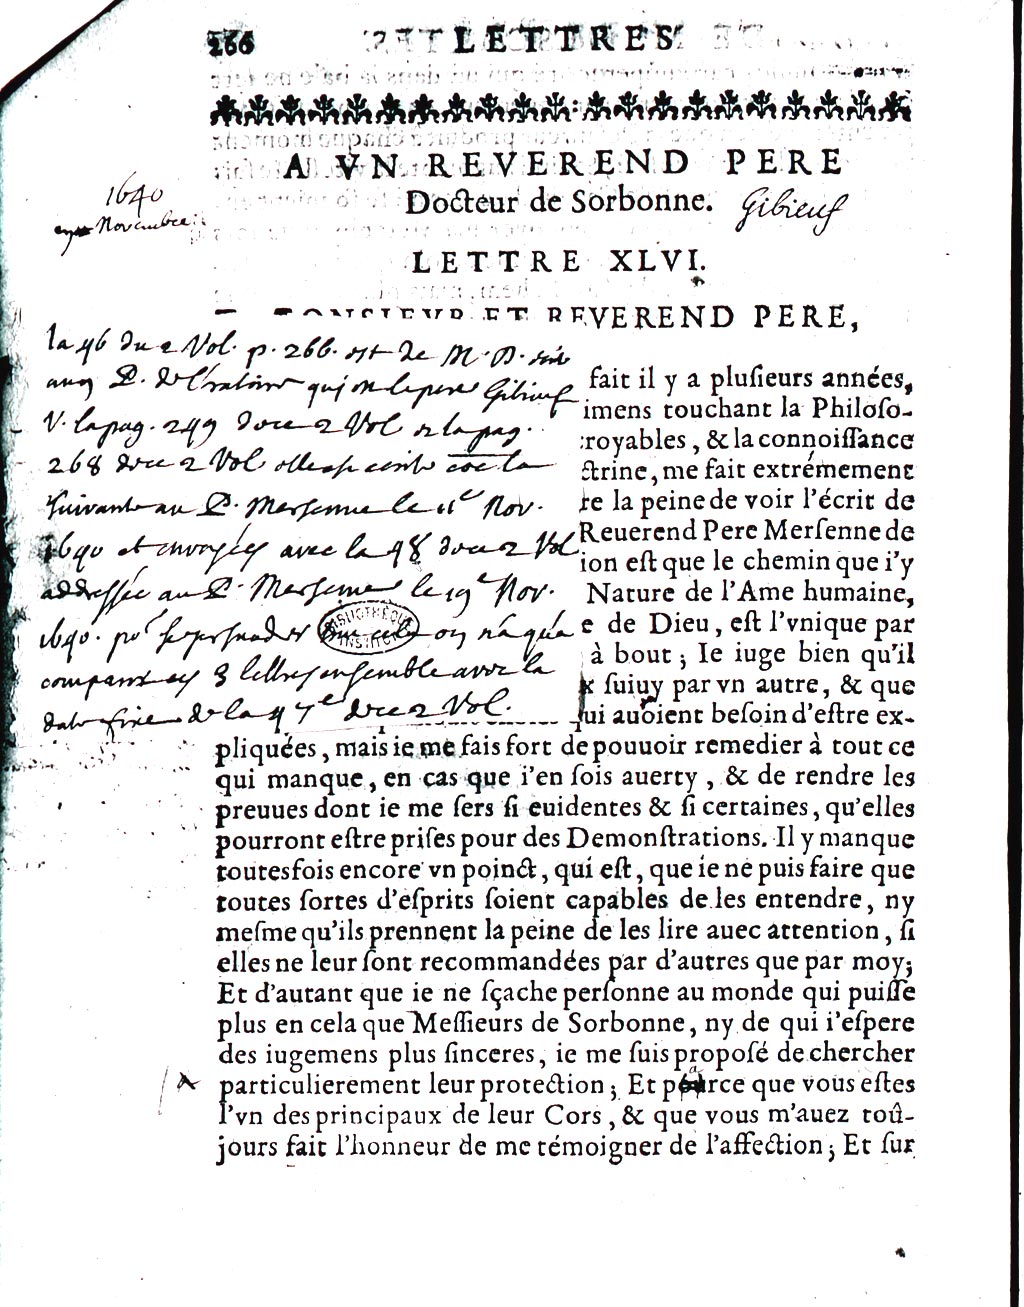 266 LETTRES
A VN REVEREND PERE
Docteur de Sorbonne. Gibieuf
1640
Novembre
LETTRE XLVI.
REVEREND PERE,
la 46 du 2 Vol. p. 266. est de M. D.
au P. de l'oratoire qui est le pere Gibieuf
V. la pag. 249 du 2 Vol et la pag.
268 du 2 Vol elle est écrite la
suivante au P. Mersenne le 11e Nov.
1640 et envoyées avec la 48 du 2 Vol
addressée au P. Mersenne le 19e Nov.
1640. pour se persuader on n'a qu'a
comparer ces 3 lettres ensemble avec la
date fixe de la 47e du 2 Vol.
BIBLIOTHÈQUE INSTITUT
fait il y a plusieurs années,
imens touchant la Philoso-
royables, & la connoissance
ctrine, me fait extrémement
re la peine de voir l'écrit de
Reuerend Pere Mersenne de
ion est que le chemin que i'y
Nature de l'Ame humaine,
e de Dieu, est l'vnique par
à bout; Ie iuge bien qu'il
x suiuy par vn autre, & que
qui auoient besoin d'estre ex-
pliquées, mais ie me fais fort de pouuoir remedier à tout ce
qui manque, en cas que i'en sois auerty, & de rendre les
preuues dont ie me sers si euidentes & si certaines, qu'elles
pourront estre prises pour des Demonstrations. Il y manque
toutesfois encore vn poinct, qui est, que ie ne puis faire que
toutes sortes d'esprits soient capables de les entendre, ny
mesme qu'ils prennent la peine de les lire auec attention, si
elles ne leur sont recommandées par d'autres que par moy;
Et d'autant que ie ne sçache personne au monde qui puisse
plus en cela que Messieurs de Sorbonne, ny de qui i'espere
des iugemens plus sinceres, ie me suis proposé de chercher
particulierement leur protection; Et parce que vous estes
l'vn des principaux de leur Cors, & que vous m'auez toû-
jours fait l'honneur de me témoigner de l'affection; Et sur